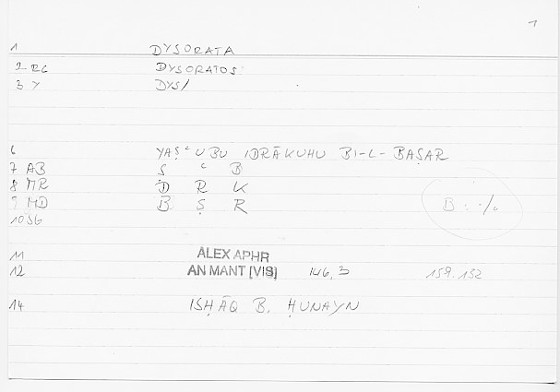 1
1 DYSORATA
2 RC DYSORATOS
3 Y DYS/
6 YAṢʿUBU IDRĀKUHU BI-L-BAṢAR
7 AB Ṣ ʿ B
8 MR D R K
9 MD B Ṣ R B : ·/.
10 SG
11 ALEX APHR
12 AN MANT [VIS] 146,3 159.152
14 ISḤĀQ B. ḤUNAYN